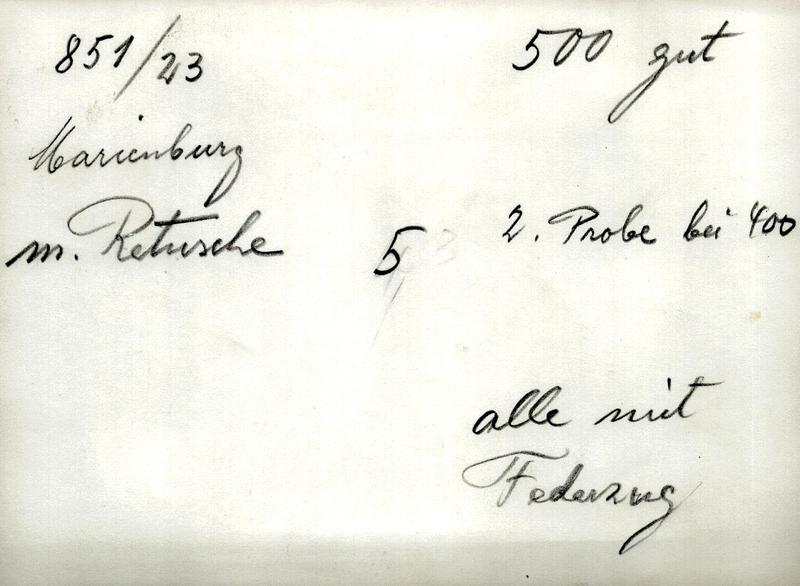 851/23
500 gut
Marienburg
m. Retusche
5
2. Probe bei 400
alle mit
Federzug